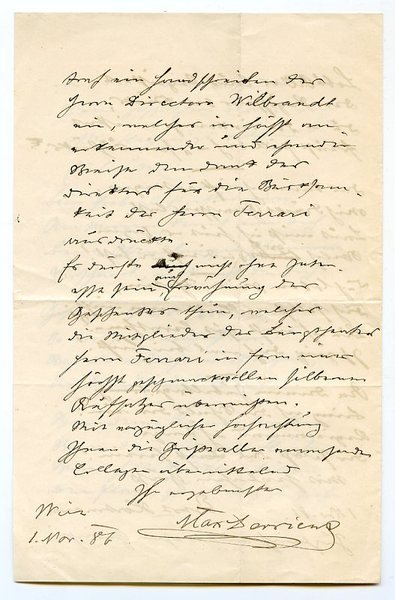 traf ein Handschreiben des
Herrn Directors Wilbrandt
ein, welches in höchst an-
erkennender und ehrender
Weise den dank des
direktors für die Bücksam-
keit des Herrn Ferrari
ausdrückte.
Es dürfte auch nicht ohne Inter-
esse sein Erwähnung des
Geschenkes thun, welches
die Mitglieder des Burgtheaters
Herrn Ferrari in form eines
höchst geschmackvollen silbernen
Aufsatzes überreichten.
Mit vorzüglicher Hochachtung
Ihnen die
Beilagen übermittelnd
Ihr ergebenster
Max Derrient
Wien
1. Nov. 86